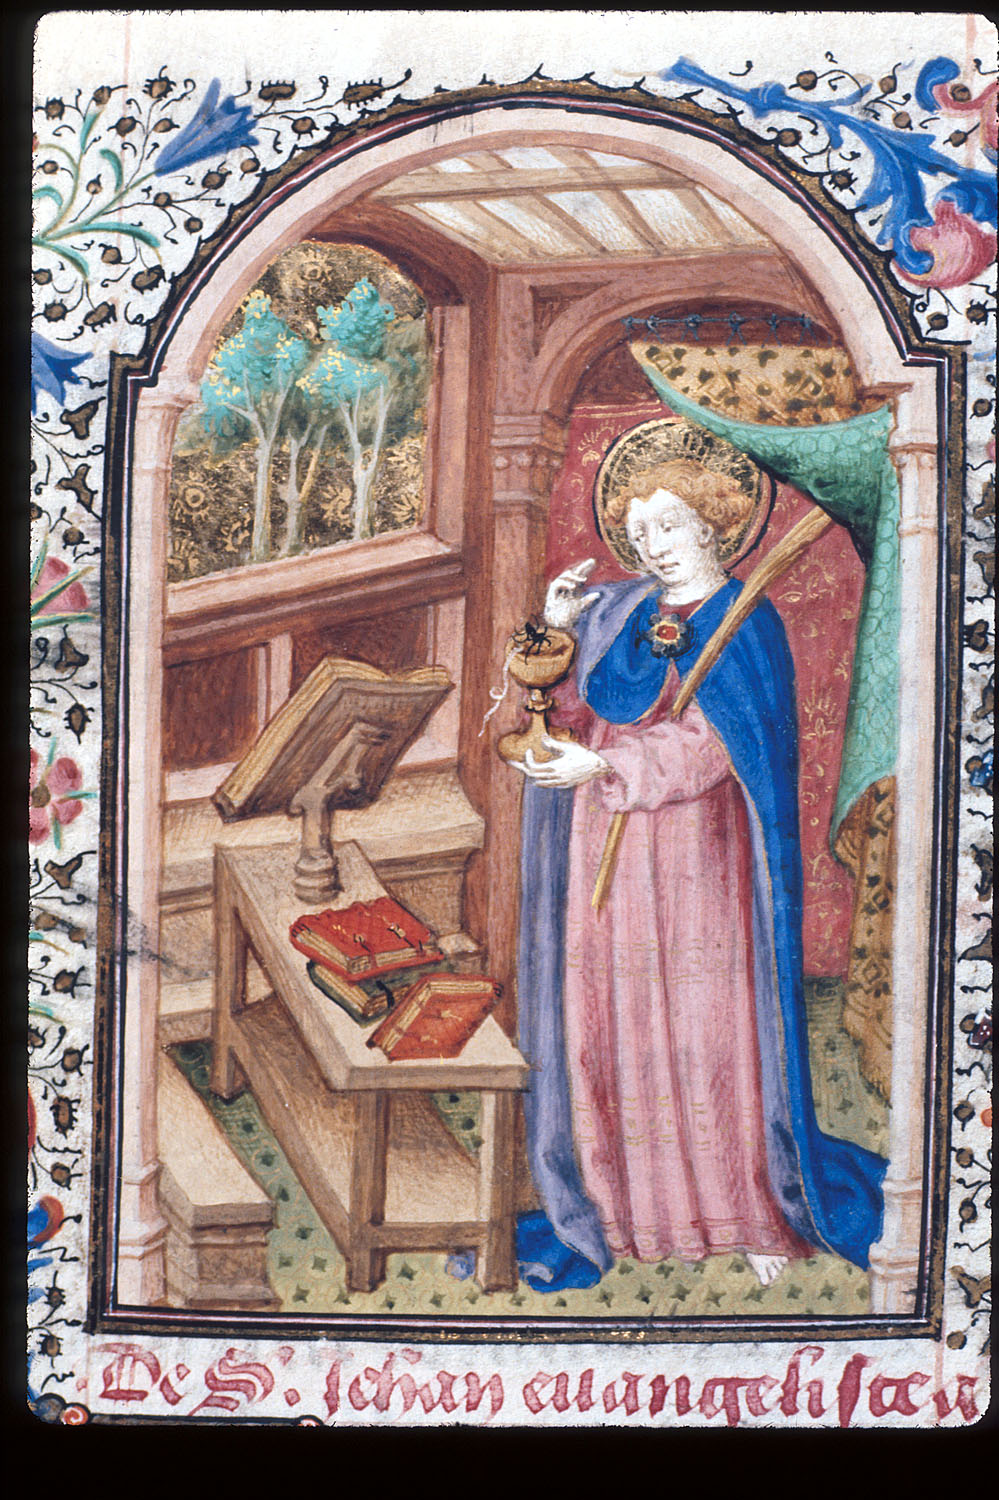 De S. Jehan euuangeliste